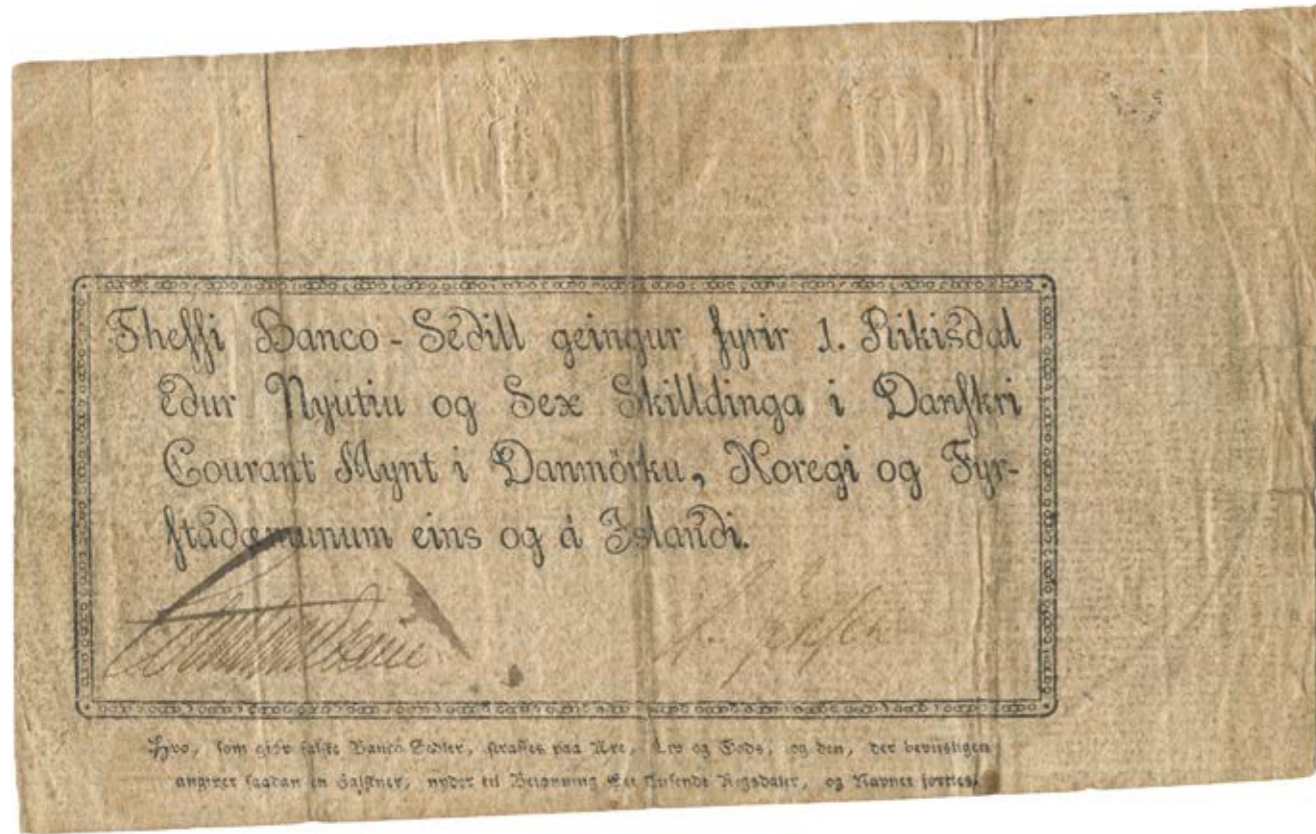 Thessi Banco-Sedill geingur fyrir 1. Rikisdal
Edur Nyutiu og Sex Skilldinga i Danskri
Courant Mynt i Danmörku, Noregi og Fyr-
stadæmunum eins og á Islandi.
Hvo, som giör falske Banco Sedler, straffes paa Ære, Liv og Gods; og den, der beviisligen
angiver saadan en Falskner, nyder til Belønning Eet Tusende Rigsdaler, og Navnet forties.